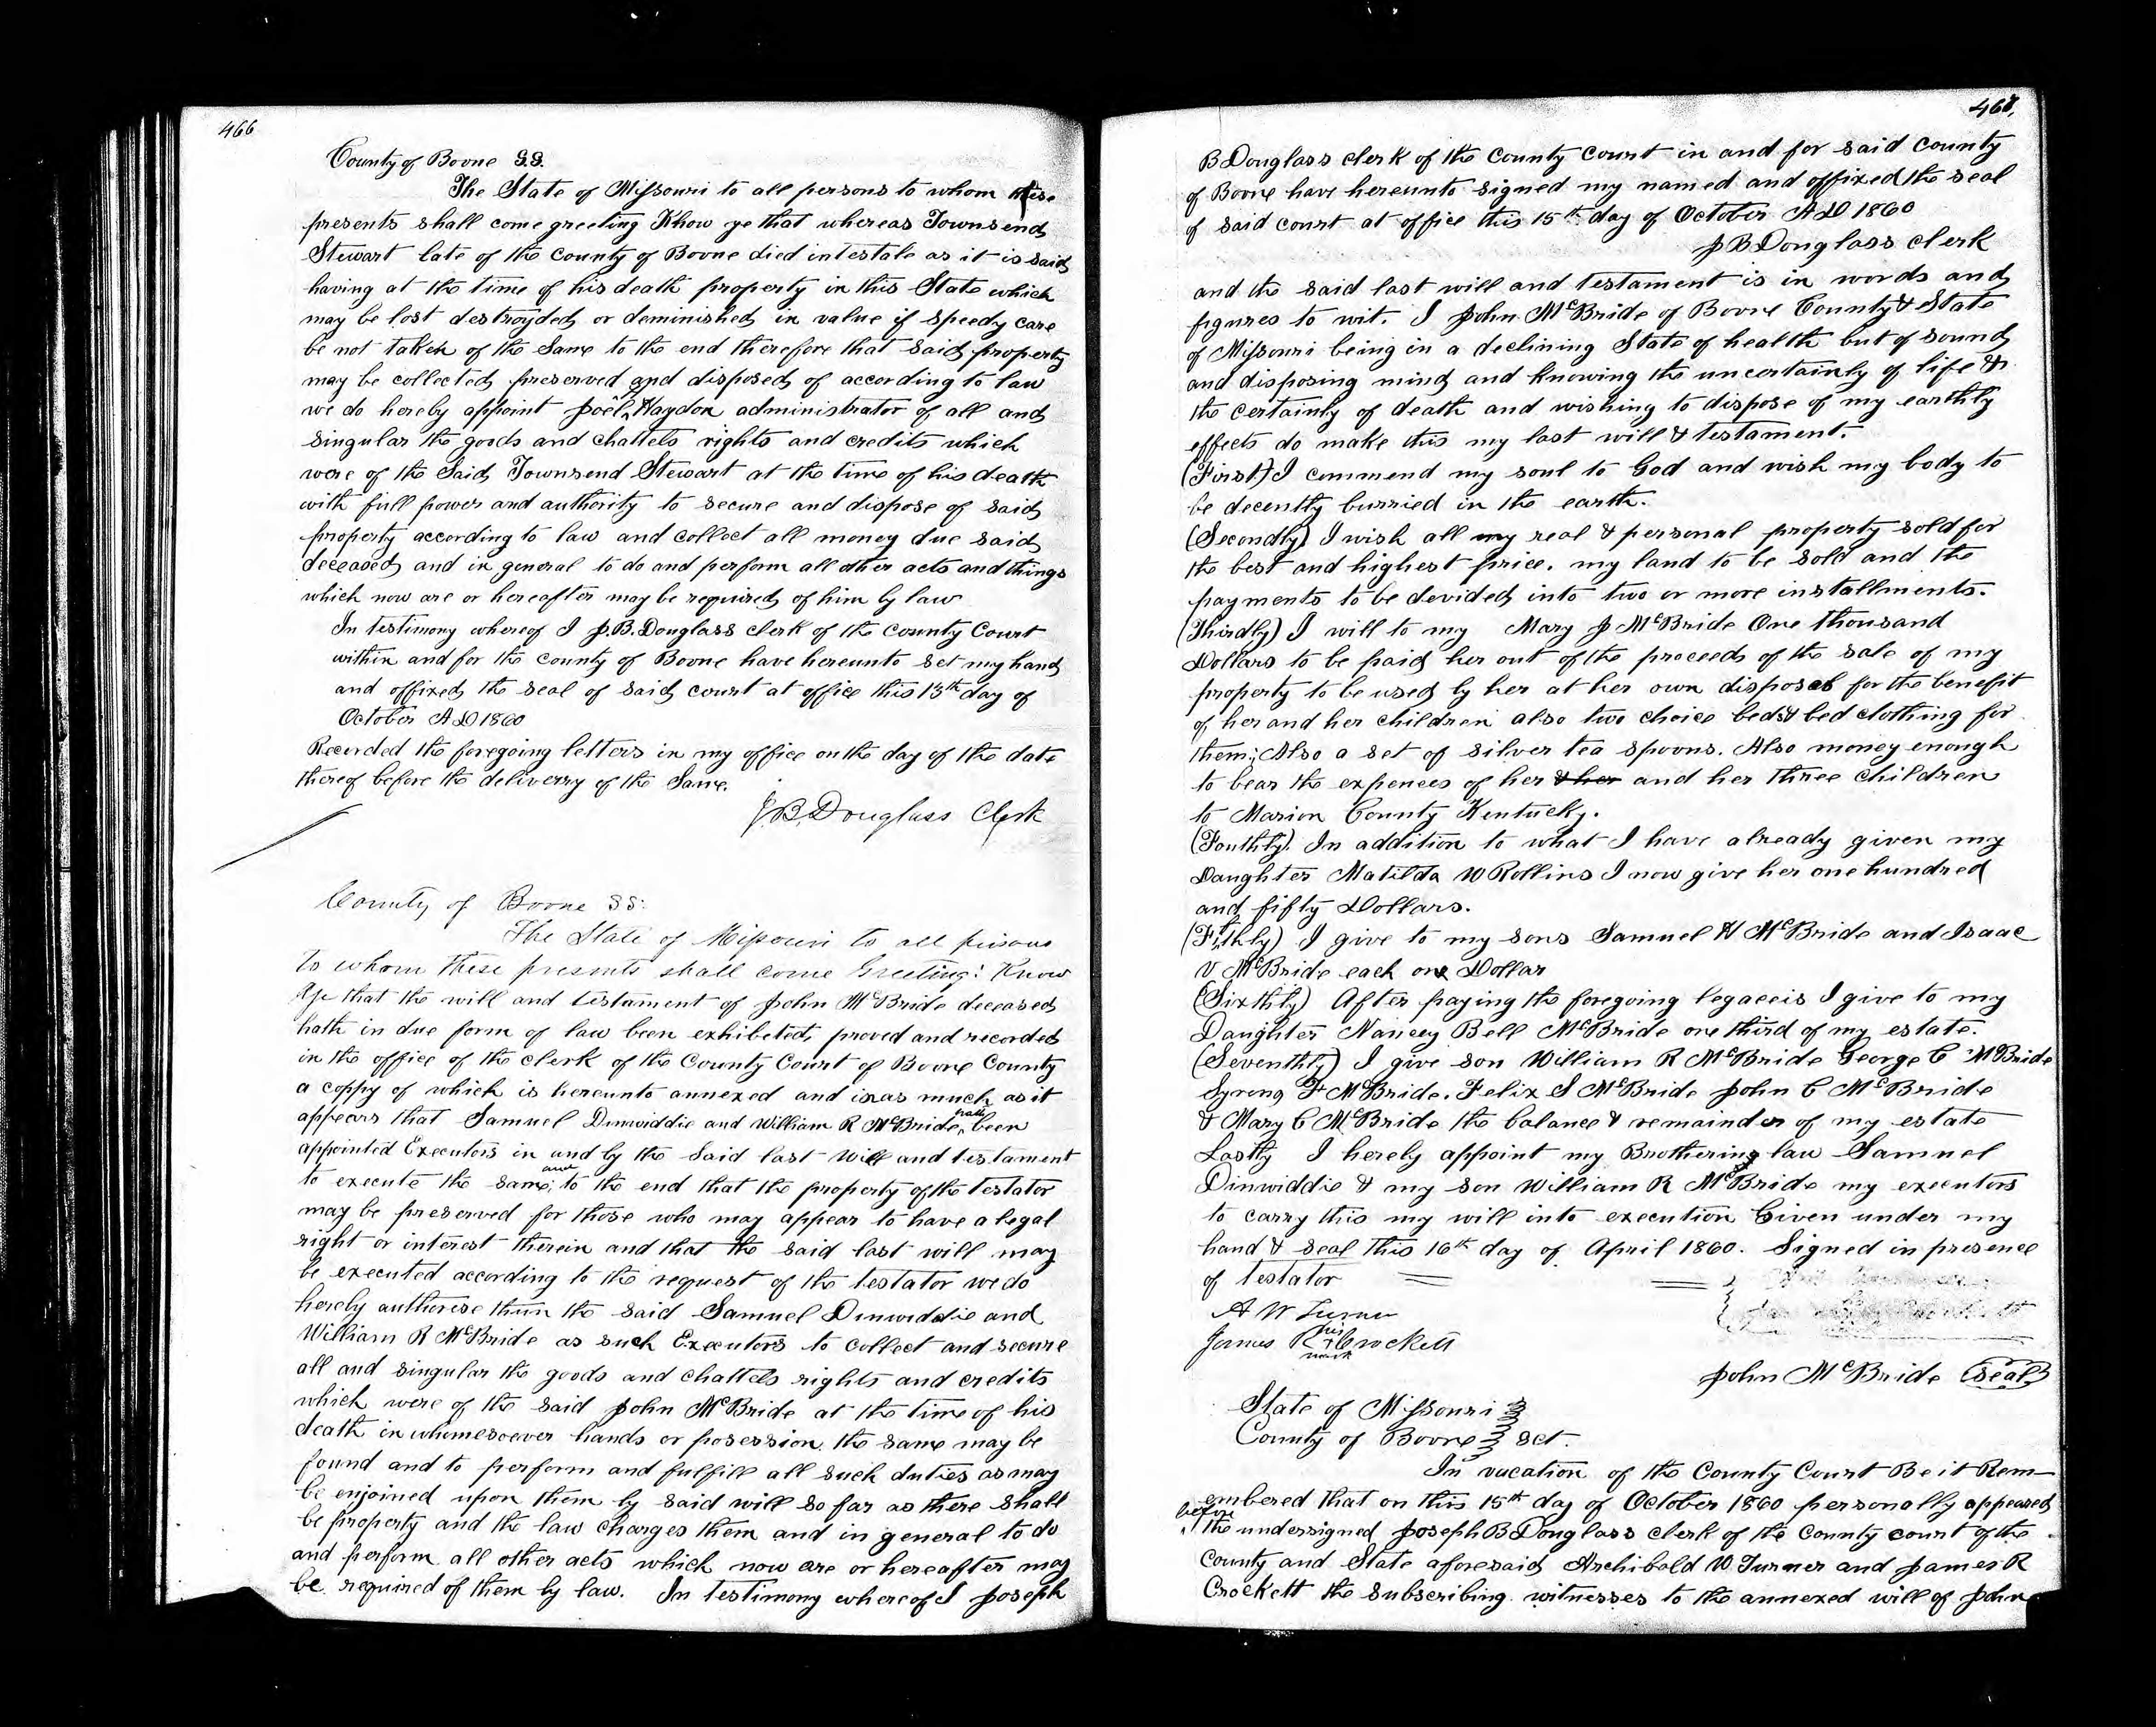 466
County of Boone S.S.
The State of Missouri to all persons to whom these
presents shall come greeting Know ye that whereas Townsend
Stewart late of the County of Boone died intestate as it is said
having at the time of his death property in this State which
may be lost destroyded or deminished in value if speedy care
be not taken of the Same to the end therefore that said property
may be collected preserved and disposed of according to law
we do hereby appoint Joel Haydon administrator of all and
singular the goods and chattels rights and credits which
were of the Said Townsend Stewart at the time of his death
with full power and authority to secure and dispose of said
property according to law and collect all money due said
deceased and in general to do and perform all other acts and things
which now are or hereafter may be required of him by law
In testimony whereof I J.B. Douglass clerk of the County Court
within and for the county of Boone have hereunto set my hand
and affixed the seal of said court at office this 13th day of
October A D 1860
Recorded the foregoing letters in my office on the day of the date
thereof before the deliverry of the Same.
J.B. Douglass Clerk
County of Boone SS:
The State of Missouri to all persons
To whom these presents shall come Greeting: Know
Ye that the will and testament of John McBride deceased
hath in due form of law been exhibeted, proved and recorded
in the office of the clerk of the County Court of Boone County
a coppy of which is hereunto annexed and inas much as it
appears that Samuel Dinwiddie and William R McBride hath been
appointed Executors in and by the Said last Will and testament
to execute the same, and to the end that the property of the testator
may be preserved for those who may appear to have a legal
right or interest therein and that the said last will may
be executed according to the request of the testator we do
hereby authorise them the said Samuel Dinwiddie and
William R McBride as such Executors to collect and secure
all and singular the goods and chattels rights and credits
which were of the said John McBride at the time of his
death in whomesoever hands or posession the same may be
found and to perform and fulfill all such duties as may
be enjoined upon them by said will so far as there shall
be property and the law charges them and in general to do
and perform all other acts which now are or hereafter may
be required of them by law. In testimony whereof I Joseph
467.
B Douglass clerk of the County Court in and for said County
of Boone have hereunto signed my named and affixed the seal
of said court at office this 15th day of October A D 1860
J B Douglass clerk
and the said last will and testament is in words and
figures to wit. I John McBride of Boone County & State
of Missouri being in a declining State of health but of sound
and disposing mind and knowing the uncertainly of life &
the certainly of death and wishing to dispose of my earthly
effects do make this my last will & testament.
(First) I commend my soul to God and wish my body to
be decently burried in the earth.
(Secondly) I wish all my real & personal property sold for
the best and highest price. my land to be sold and the
payments to be devided into two or more installments.
(Thirdly) I will to my Mary J McBride One thousand
Dollars to be paid her out of the proceeds of the sale of my
property to be used by her at her own disposal for the benefit
of her and her children also two choice beds & bed clothing for
them; Also a set of silver tea spoons. Also money enough
to bear the expences of her & her and her three children
to Marion County Kentucky.
(Fouthly). In addition to what I have already given my
Daughter Matilda W Rollins I now give her one hundred
and fifty Dollars.
(Fifthly) I give to my sons Samuel H McBride and Isaac
V McBride each one Dollar
(Sixthly) After paying the foregoing legaceis I give to my
Daughter Nancey Bell McBride one third of my estate.
(Seventhly) I give son William R McBride George C McBride
Syrong F McBride. Felix S McBride John C McBride
& Mary C McBride the balance & remainder of my estate
Lastly I hereby appoint my Brothering law Samuel
Dinwiddie & my son William R McBride my executors
to carry this my will into execution Given under my
hand & seal this 16th day of April 1860. Signed in presence
of testator
A W Turner
James R his x mark Crockett
John McBride (Seal)
State of Missouri
County of Boone Sct.
In vacation of the County Court Be it Rem-
embered that on this 15th day of October 1860 personally appeared
before the undersigned Joseph B Douglass clerk of the County court of the
County and State aforesaid Archibald W Turner and James R
Crockett the subscribing witnesses to the annexed will of John